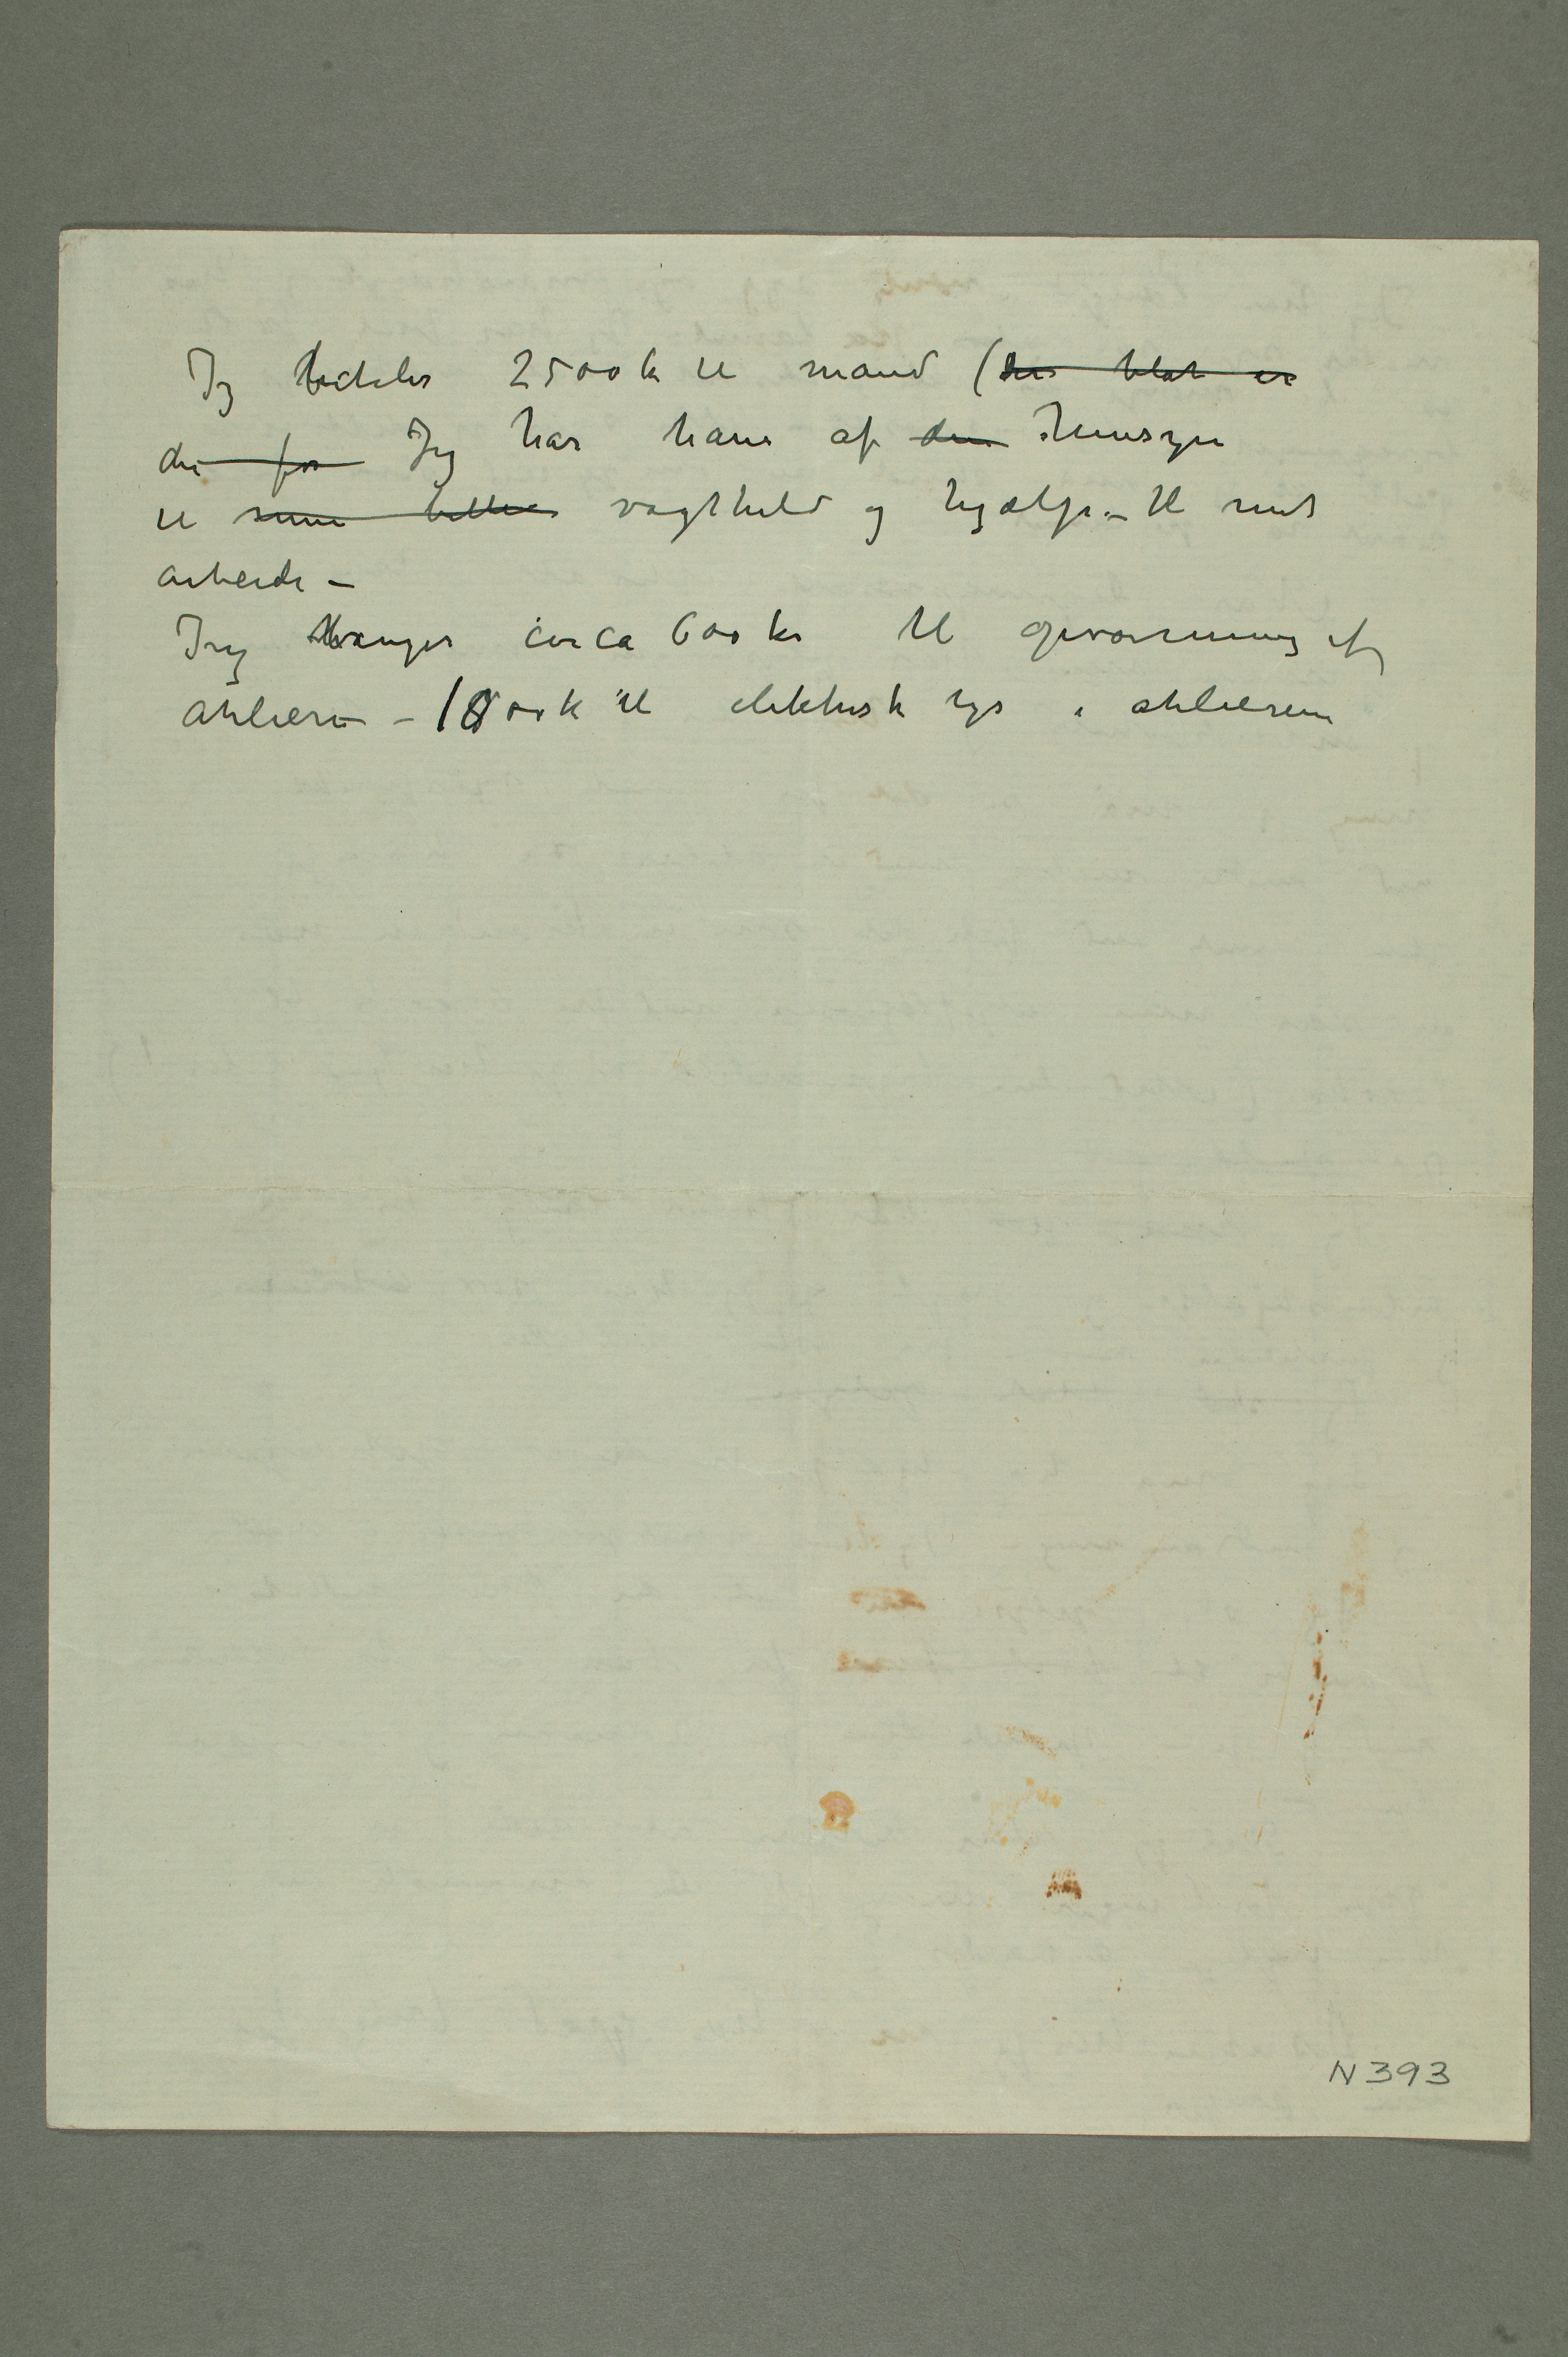 Jeg betaler 2500 k til mand (der blot er
der for Jeg har ham af den hensyn
til mine billeder vagthold og hjælp – til mit
arbeide –
Jeg trænger circa 600 kr til opvarmning af
atelier – 1000 k til elektrisk lys i atelieren
N 393